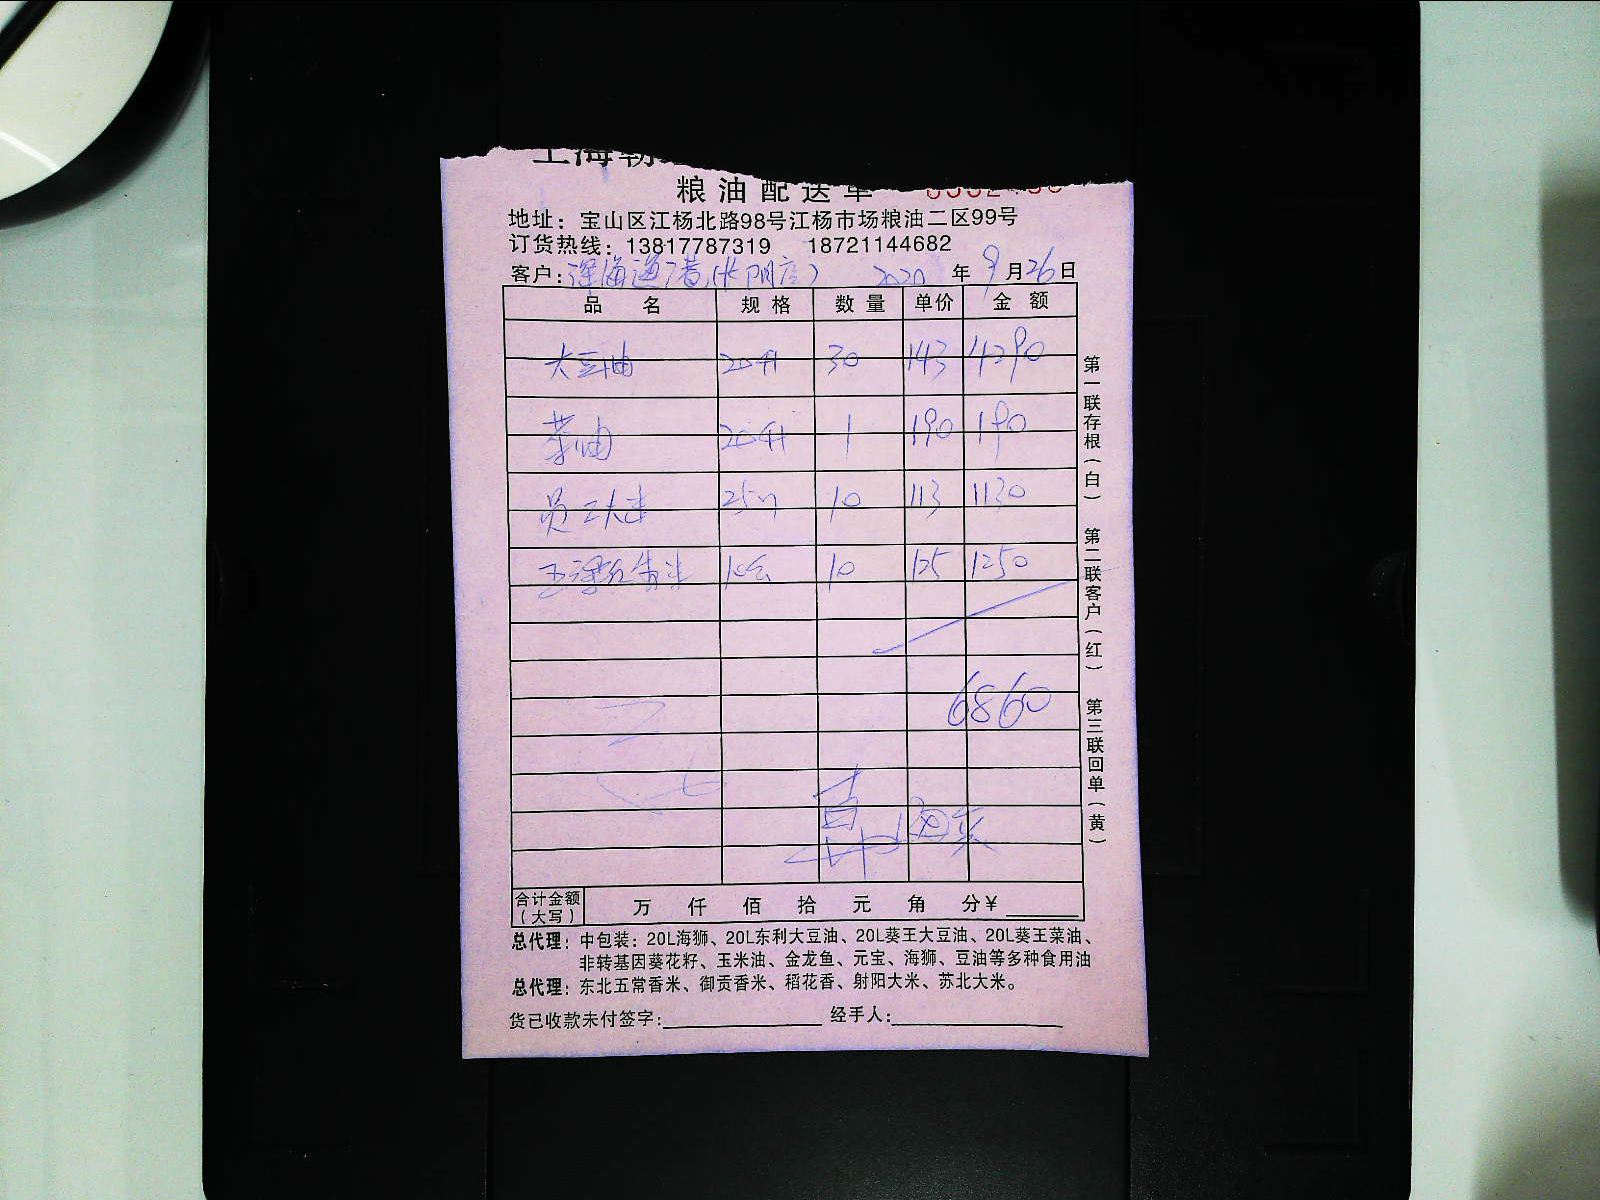 上海
粮油配送单
地址：宝山区江杨北路98号江杨市场粮油二区99号
订货热线：13817787319 18721144682
客户： 2020 年 9 月 26 日
品 名 规 格 数 量 单价 金 额
大豆油 20升 30 143 4290
菜油 20升 1 190 190
员工大米 25 10 113 1130
10 125 1250
6860
合计金额（大写） 万 仟 佰 拾 元 角 分￥
总代理：中包装：20L海狮、20L东利大豆油、20L葵王大豆油、20L葵王菜油、
非转基因葵花籽、玉米油、金龙鱼、元宝、海狮、豆油等多种食用油
总代理：东北五常香米、御贡香米、稻花香、射阳大米、苏北大米。
货已收款未付签字： 经手人：
第一联存根（白） 第二联客户（红） 第三联回单（黄）